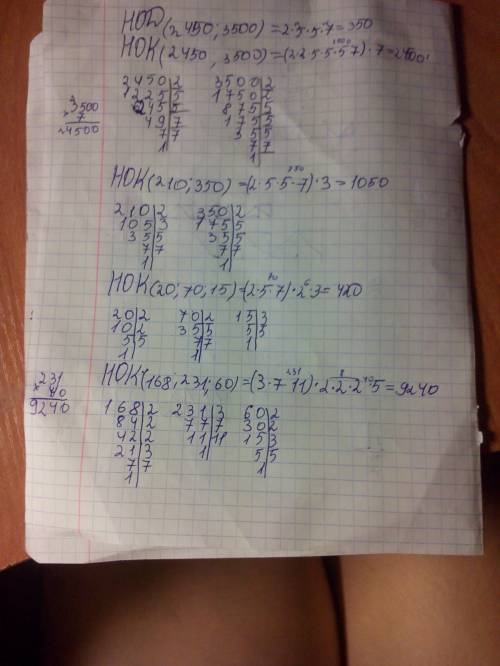 НОД(2450; 3500)=2·5·5·7=350
НОК(2450, 3500)=(2·2·5·5·5·7)·7=24500
2450|2 3500|2
1225|5 1750|2
245|5 875|5
49|7 175|5
7|7 35|5
1| 7|7
1|
3500
× 7
24500
НОК(210; 350)=(2·5·5·7)·3=1050
210|2 350|2
105|3 175|5
35|5 35|5
7|7 7|7
1| 1|
НОК(20; 70; 15)=(2·5·7)·2·3=420
20|2 70|2 15|3
10|2 35|5 5|5
5|5 7|7 1|
1| 1|
НОК(168; 231; 60)=(3·7·11)·2·2·2·5=9240
231
× 40
9240
168|2 231|3 60|2
84|2 77|7 30|2
42|2 11|11 15|3
21|3 1| 5|5
7|7 1|
1|